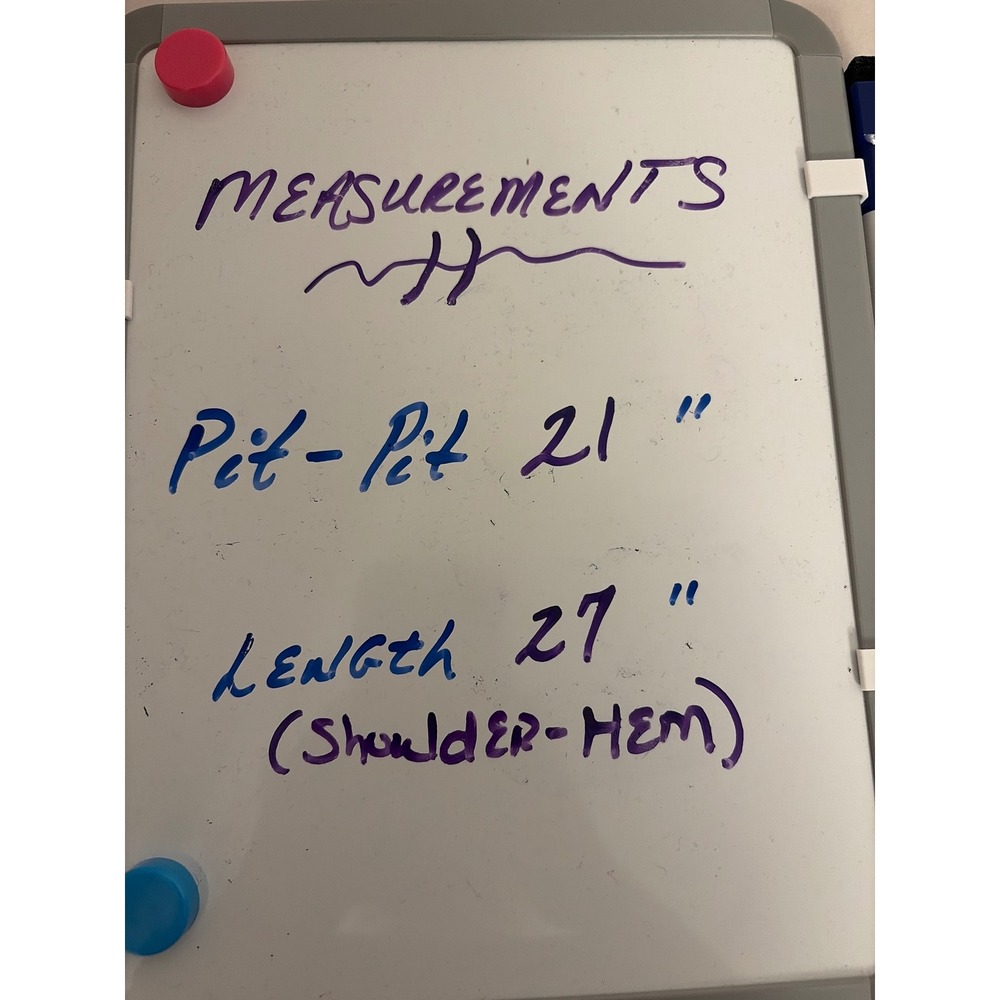 MEASUREMENTS
Pit-Pit 21 "
LENGth 27 "
(ShouldER-HEM)